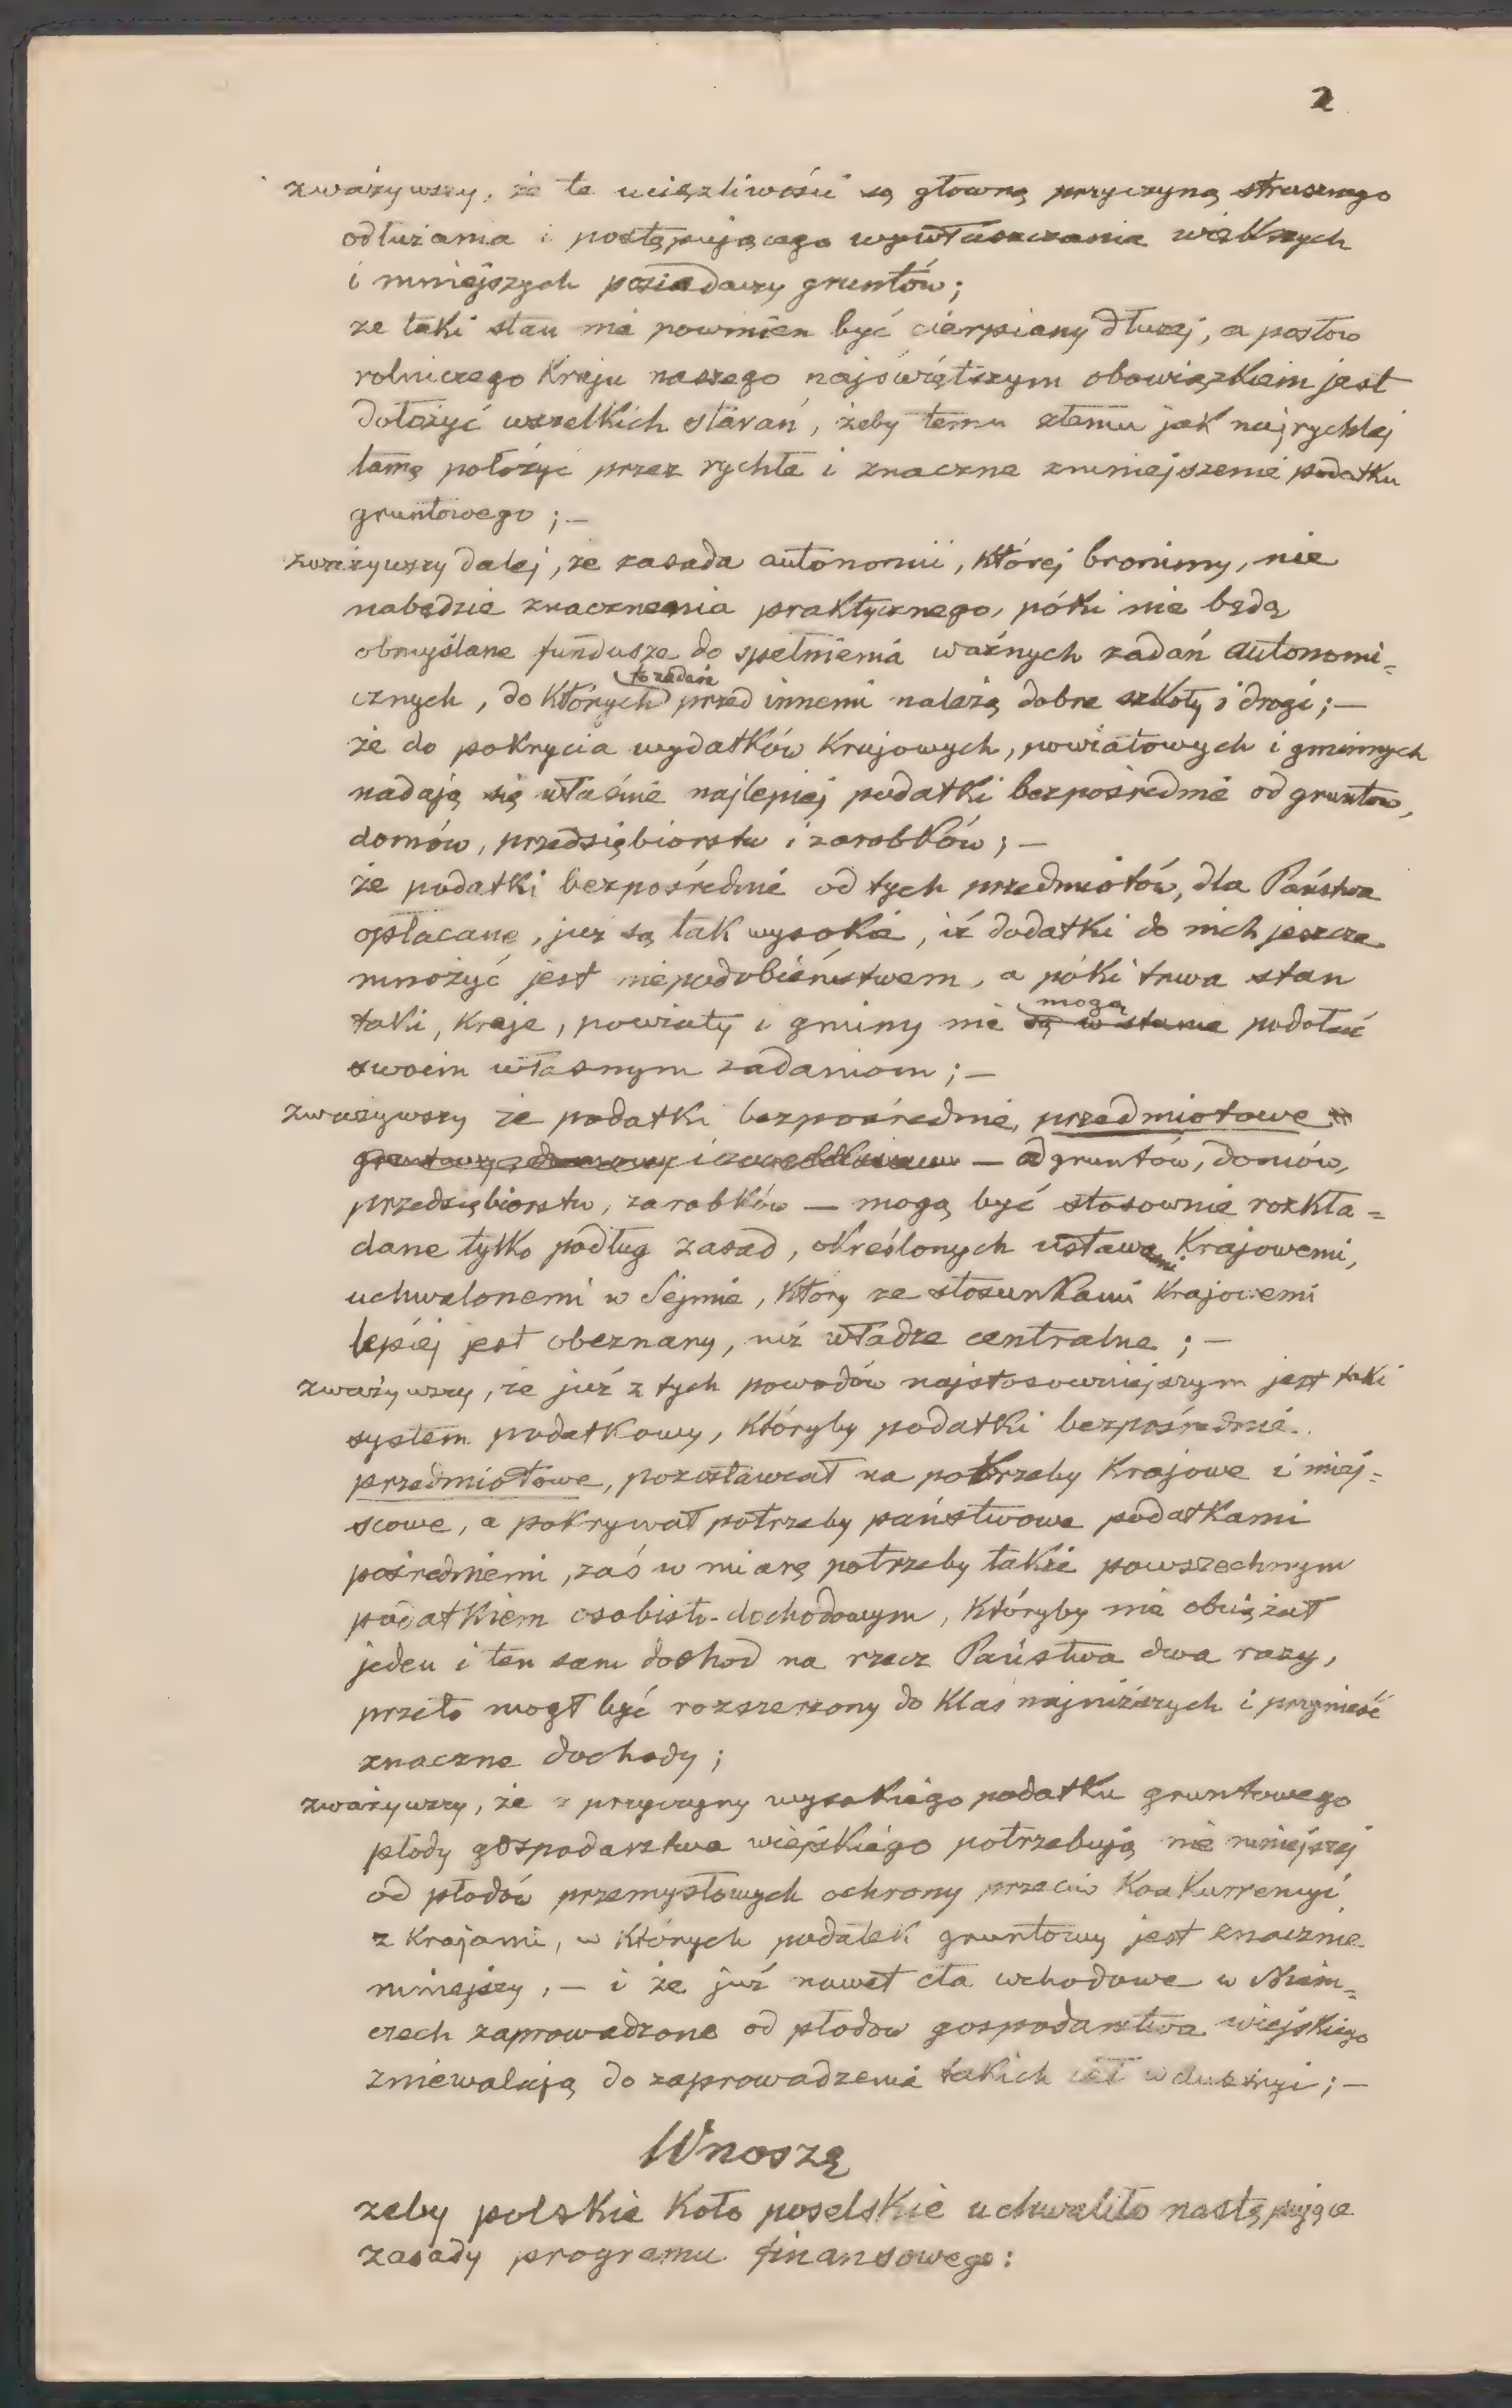 2
zważywszy, że te uciążliwości są głowną przyczyną strasznego
odłużania i postępującego wywłaszczania większych
i mniejszych posiadaczy gruntów;
że taki stan nie powinien być cierpiany dłużej, a posłow
rolniczego Kraju naszego najświętszym obowiązkiem jest
dołożyć wszelkich starań, żeby temu złemu jak najrychlej
tamę położyć przez rychłe i znaczne zmniejszenie podatku
gruntowego; —
zważywszy dalej, że zasada autonomii, Której bronimy, nie
nabędzie znaczenia praktycznego, póki nie będą
obmyślane fundusze do spełnienia ważnych zadań autonomi=
to zadań
cznych, do Których przed innemi należą dobre szkoły i drogi; —
że do pokrycia wydatków Krajowych, powiatowych i gminnych
nadają się właśnie najlepiej podatki bezpośrednie od gruntow,
domów, przedsiębiorstw i zarobków; —
że podatki bezpośrednie od tych przedmiotów, dla Państwa
opłacane, już są tak wysokie, iż dodatki do nich jeszcze
mnożyć jest niepodobieństwem, a póki trwa stan
mogą
taki, Kraje, powiaty i gminy nie są w stanie podołać
swoim własnym zadaniom; —
zważywszy że podatki bezpośrednie, przedmiotowe
— od gruntów, domów,
przedsiębiorstw, zarobków — mogą być stosownie rozkła=
dane tylko podług zasad, określonych ustawami Krajowemi,
uchwalonemi w Sejmie, Który ze stosunkami Krajowemi
lepiej jest obeznany, niż władze centralne; —
zważywszy, że już z tych powodów najstosowniejszym jest taki
system podatkowy, Któryby podatki bezpośrednie
przedmiotowe, pozostawiał na potrzeby Krajowe i miej=
scowe, a pokrywał potrzeby państwowe podatkami
pośredniemi, zaś w miarę potrzeby także powszechnym
podatkiem osobisto-dochodowym, Któryby nie obciążał
jeden i ten sam dochod na rzecz Państwa dwa razy,
przeto mogł być rozszerzony do Klas najniższych i przynieść
znaczne dochody;
zważywszy, że z przyczyny wysokiego podatku gruntowego
płody gospodarstwa wiejskiego potrzebują nie mniejszej
od płodów przemysłowych ochrony przeciw KonKurrencyi
z Krajami, w Których podatek gruntowy jest znacznie
mniejszy, — i że już nawet cła wchodowe w Niem=
czech zaprowadzone od płodow gospodarstwa wiejskiego
zniewalają do zaprowadzenia takich ceł w Austryi; —
Wnoszę
żeby polskie Koło poselskie uchwaliło następujące
zasady programu finansowego: